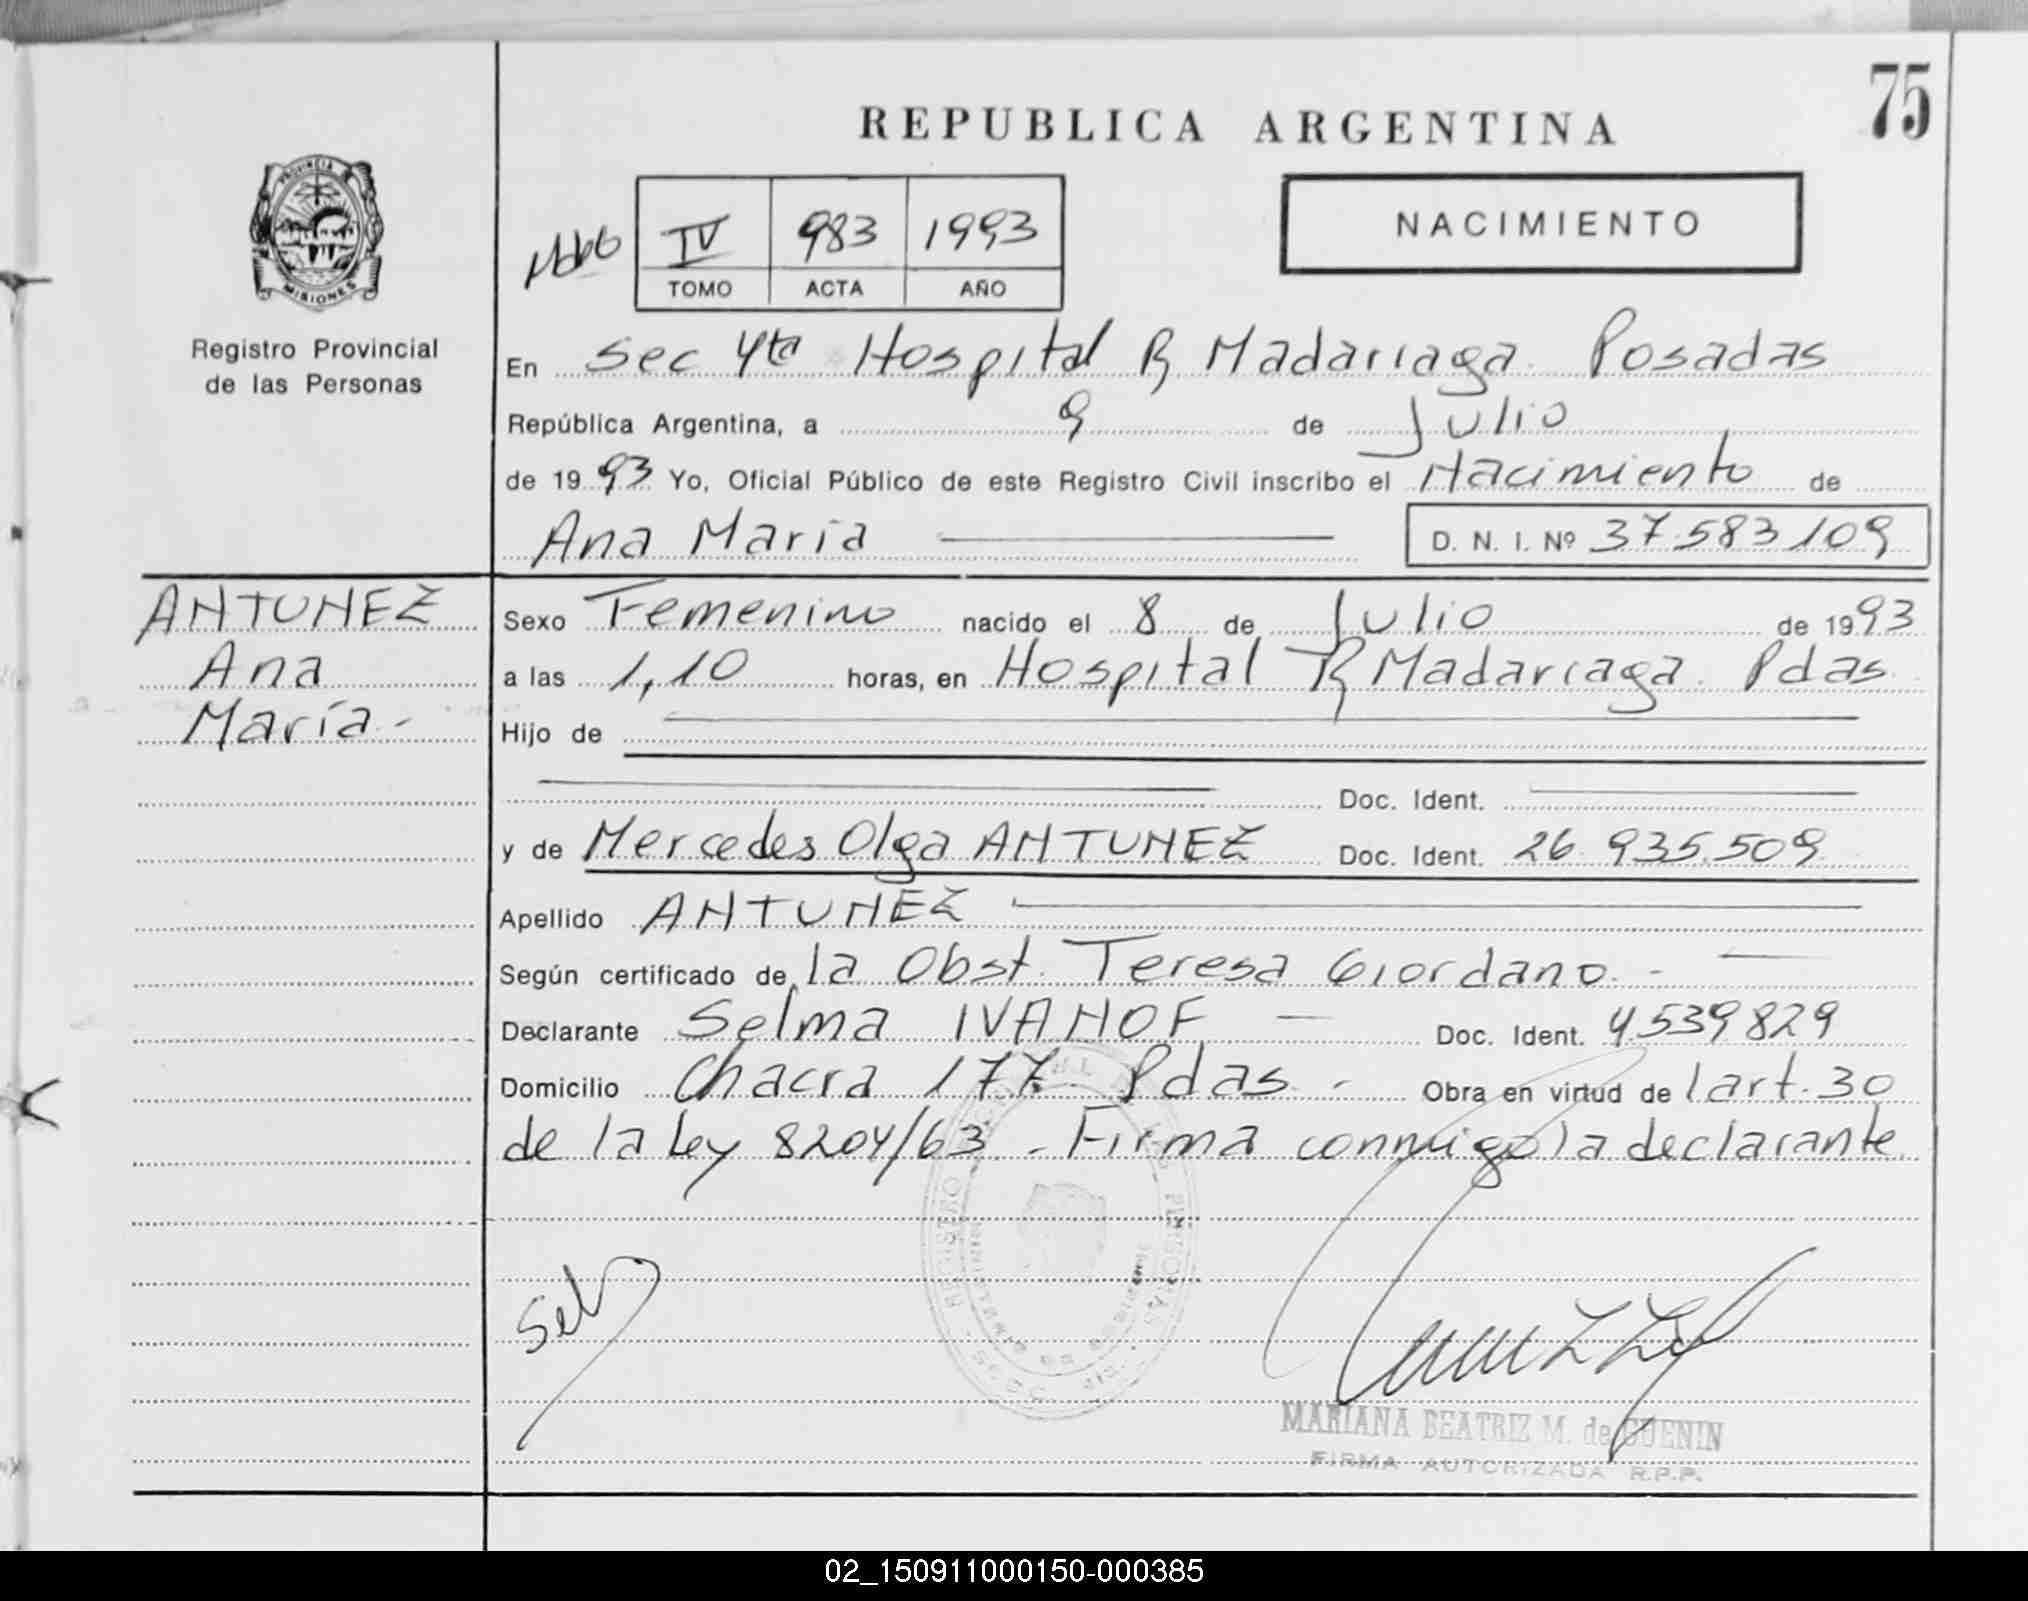 75
REPUBLICA ARGENTINA
PROVINCIA DE
MISIONES
Registro Provincial
de las Personas
IV 983 1993
TOMO ACTA AÑO
NACIMIENTO
En Sec 4ta Hospital R Madariaga. Posadas
República Argentina, a 9 de Julio
de 1993 Yo, Oficial Público de este Registro Civil inscribo el Nacimiento de
Ana María
D. N. I. Nº 37.583.109
ANTUNEZ
Ana
María.-
Sexo Femenino nacido el 8 de Julio de 1993
a las 1,10 horas, en Hospital R Madariaga. Pdas
Hijo de
Doc. Ident.
y de Mercedes Olga ANTUNEZ Doc. Ident. 26.935.509
Apellido ANTUNEZ
Según certificado de la Obst. Teresa Giordano.-
Declarante Selma IVANOF - Doc. Ident. 4.539.829
Domicilio Chacra 177. Pdas.- Obra en virtud de l art. 30
de la Ley 8204/63.- Firma conmigo la declarante
MARIANA BEATRIZ M. de GUENIN
FIRMA AUTORIZADA R.P.P.
02_150911000150-000385